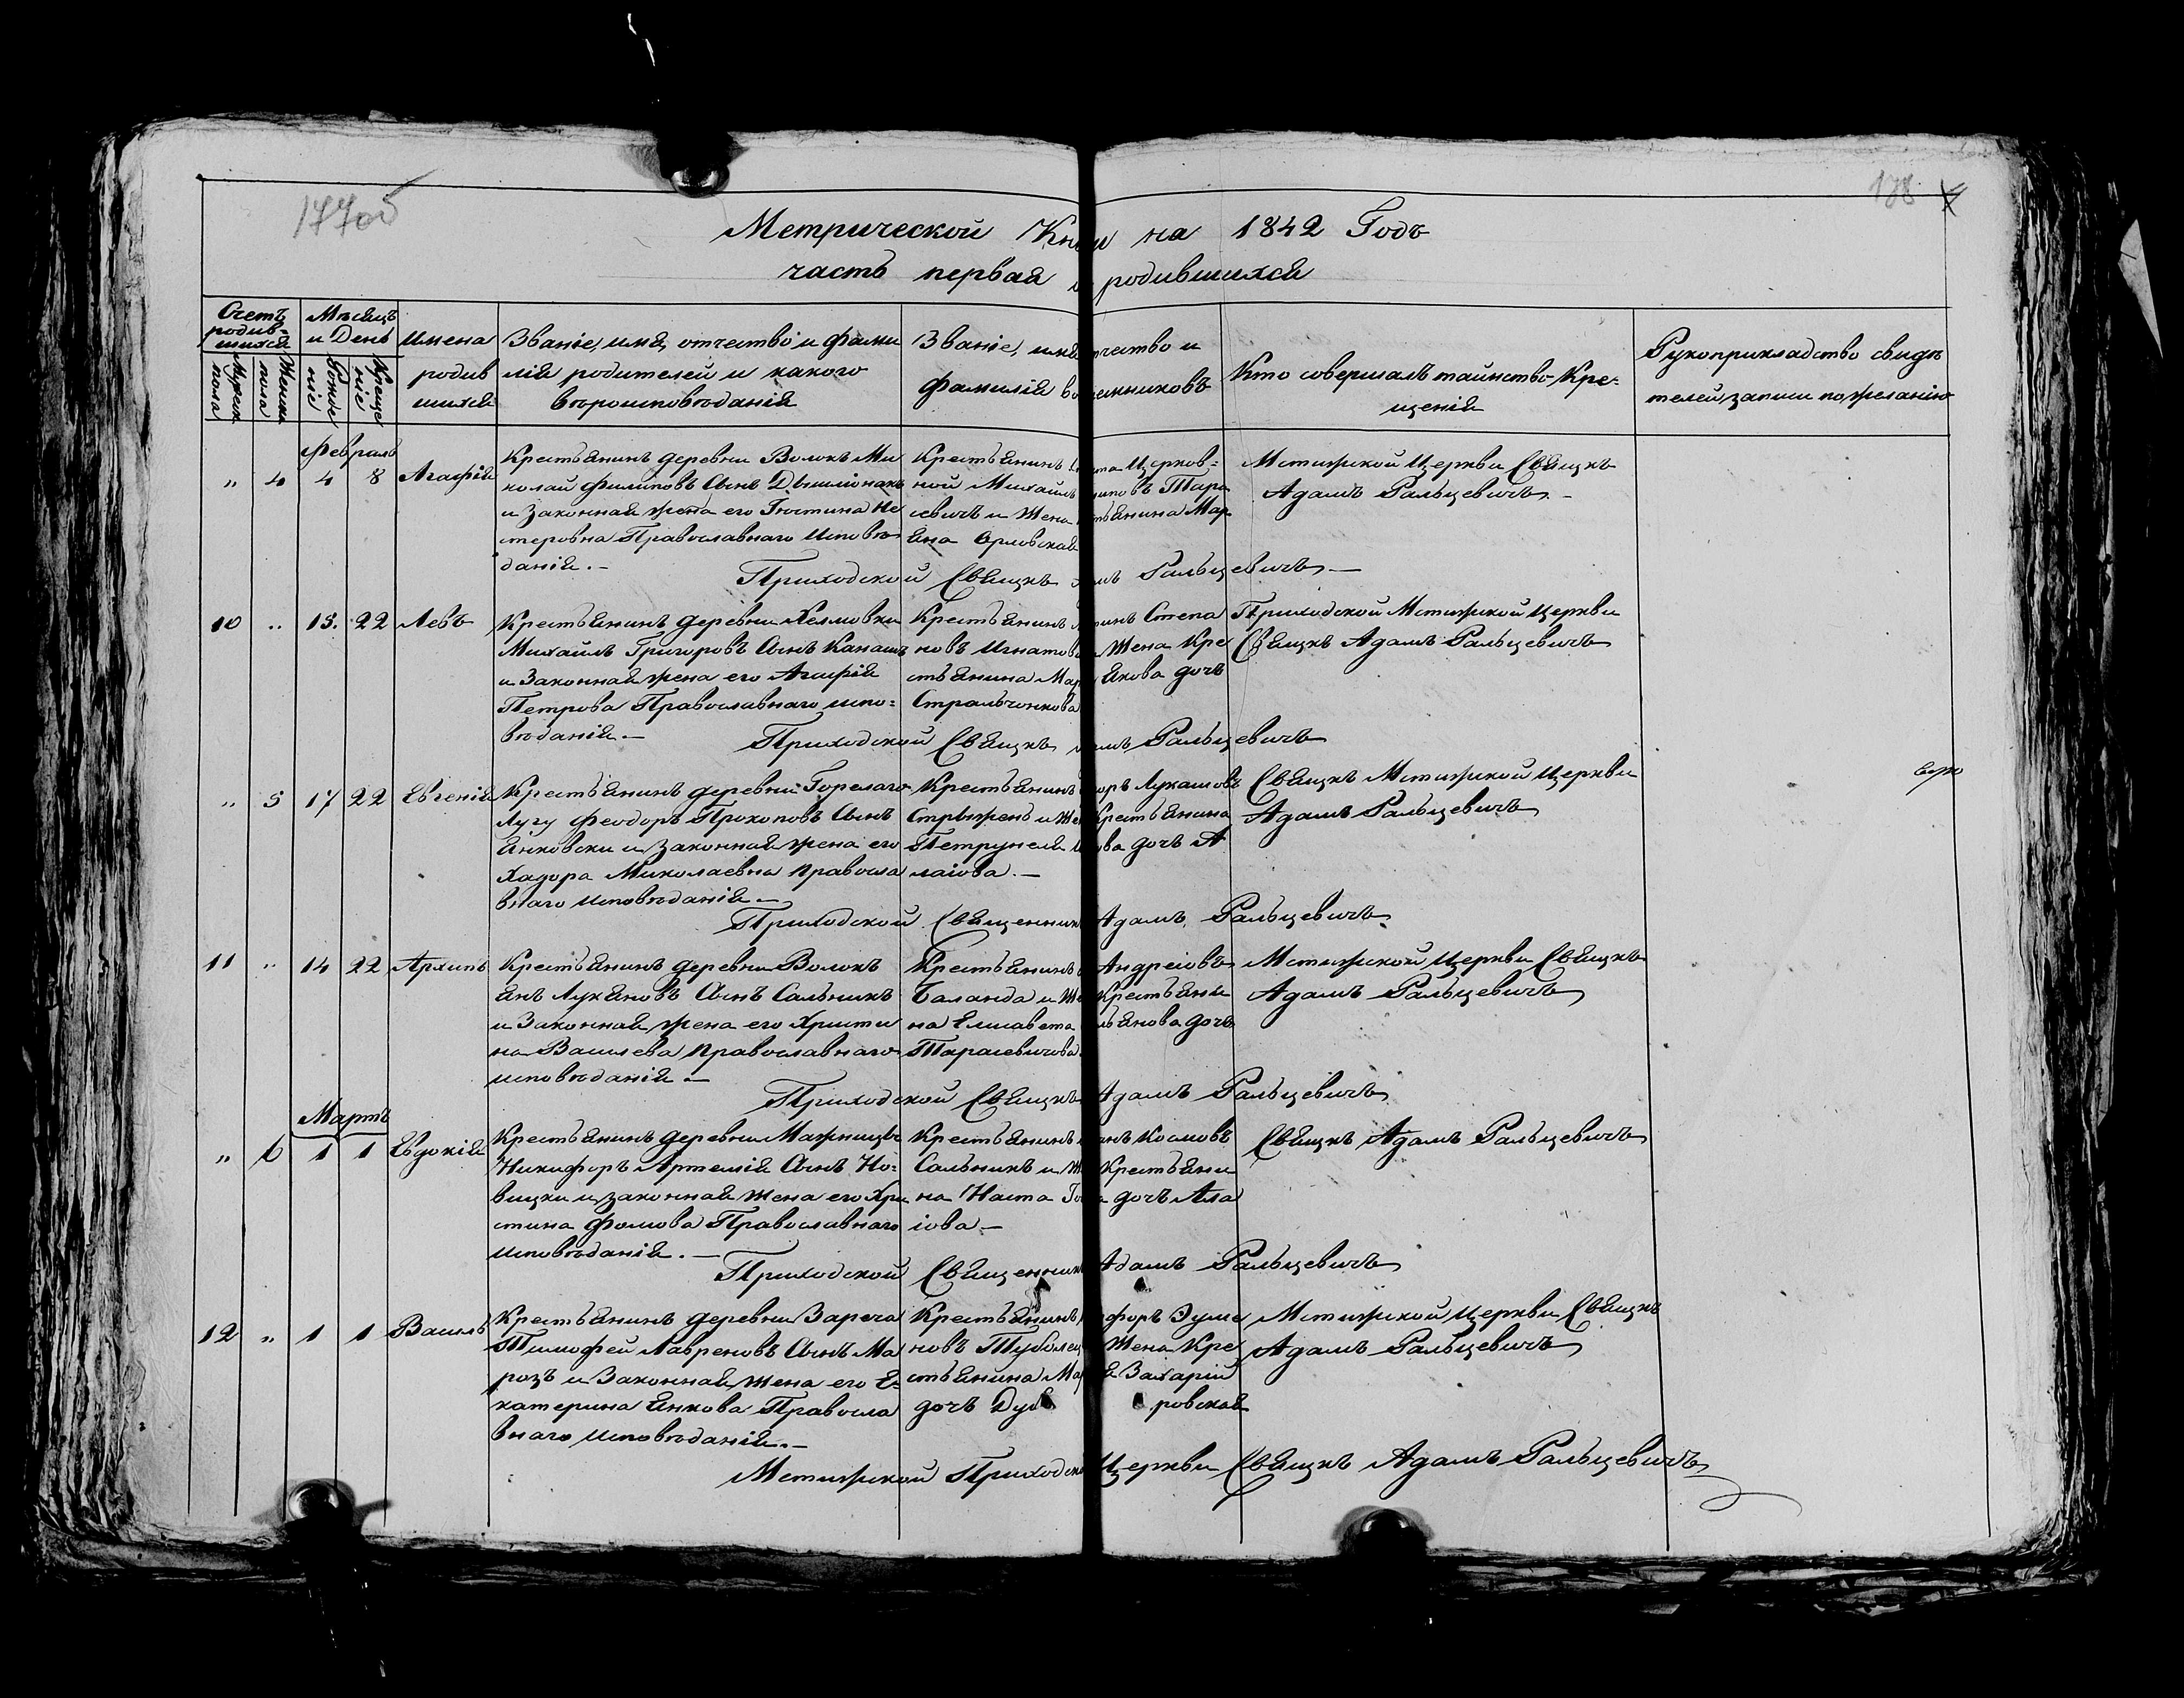 177об
178
Метрической Книги на 1842 Годъ
часть первая о родившихся
Счетъ родившихся
Мужеск пола
Женска пола
Мѣсяцъ и День
Рожденіе
Крещеніе
Имена родившихся
Званіе, имя, отчество, и фамилія родителей и какого вѣроисповѣданія
Званіе, имя отчество и фамилія воспріемниковъ
Кто совершалъ таинство Крещенія
Рукоприкладство свидѣтелей записи по желанію
Февраль
„ 4 4 8 Агафія
Крестьянинъ деревни Волокъ Ми
колай Филиповъ Сынъ
и Законная жена его Іюстина Не
стеровна Православнаго Исповѣ
данія.–
Крестьянинъ Церков-
ной Михаилъ Тара
севичъ и Жена Мар
яна Орловская
Мстижской Церкви Свящкъ
Адамъ Ральцевичъ –
Приходской Свящкъ Адамъ Ральцевичъ –
10 „ 15. 22 Левъ
Крестьянинъ деревни Хелмовки
Михаилъ Григоровъ Сынъ Канашъ
и Законная жена его Агафія
Петрова Православнаго испо-
вѣданія –
Крестьянинъ Степа
новъ Игнатов Жена Кре
стьянина Якова дочь
Стральчонкова
Приходской Мстижской Церкви
Свящкъ Адамъ Ральцевичъ
Приходской Свящкъ Адамъ Ральцевичъ
„ 5 17 22 Евгенія
Крестьянинъ деревни Горелаго
Лугу Феодоръ Прокоповъ Сынъ
Янковски и законная жена его
Хадора Миколаевна Правосла
внаго Исповѣданія –
Крестьянинъ Лукашовъ
Стрыжень и Жена Крестьянина
Петрунеля дочь А
лаіова. –
Свящкъ Мстижской Церкви
Адамъ Ральцевичъ
Приходской Священникъ Адамъ Ральцевичъ
11 „ 14 22 Архипъ
Крестьянинъ деревни Волокъ
Янъ Лукяновъ Сынъ Сальникъ
и Законная жена его Христи
на Васильева Православнаго
исповѣданія –
Крестьянинъ Андреіовъ
Баланда и Жена Крестьяни
на Елисавета дочь
Тарасевичова
Мстижской Церкви Свящкъ
Адамъ Ральцевичъ
Приходской Свящкъ Адамъ Ральцевичъ
Мартъ
„ 6 1 1 Евдокія
Крестьянинъ деревни Мажницы
Никифоръ Артемія Сынъ Но-
вицки и законная жена его Хри
стина Фомова Православнаго
Исповѣданія. –
Крестьянинъ Космовъ
Сальникъ и Жена Крестьяни
на Наста дочь Ала
іова –
Свящкъ Адамъ Ральцевичъ
Приходской Священникъ Адамъ Ральцевичъ
12 „ 1 1 Василь
Крестьянинъ деревни Заречa
Тимофей Лавреновъ Сынъ Ма
розъ и Законная жена его Е-
катерина Янкова Правосла
внаго Исповѣданія. –
Крестьянинъ
новъ Жена Кре
стьянина Захарій
дочь
Мстижской Церкви Свящкъ
Адамъ Ральцевичъ
Мстижской Приходской Церкви Свящкъ Адамъ Ральцевичъ